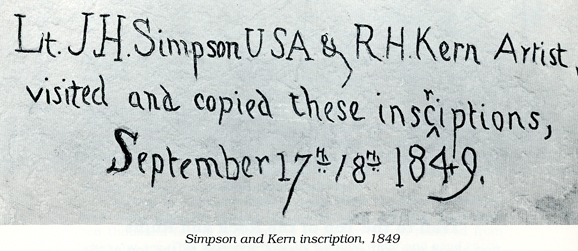 Lt. J.H. Simpson USA & R.H. Kern Artist,
visited and copied these inscriptions,
September 17th 18th 1849.
Simpson and Kern inscription, 1849